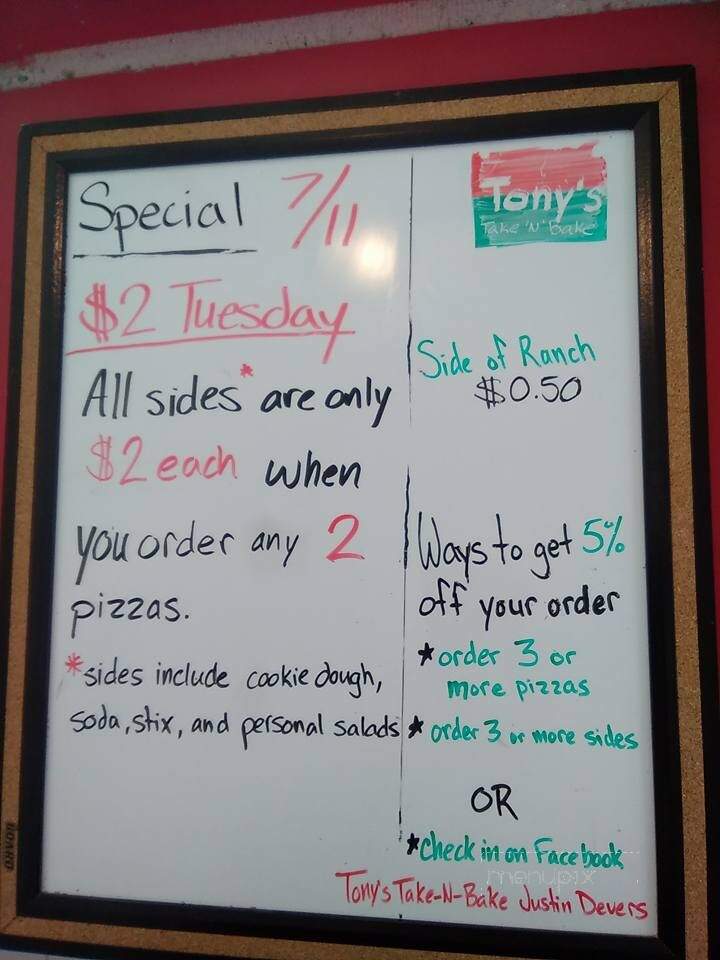 Special 7/11
$2 Tuesday
All sides* are only
$2 each when
you order any 2
pizzas.
*sides include cookie dough,
soda, stix, and personal salads
Tony's
Take 'N' bake
Side of Ranch
$0.50
Ways to get 5%
off your order
*order 3 or
more pizzas
* order 3 or more sides
OR
*check in on Facebook
menupix
Tony's Take-N-Bake Justin Devers
BOARD